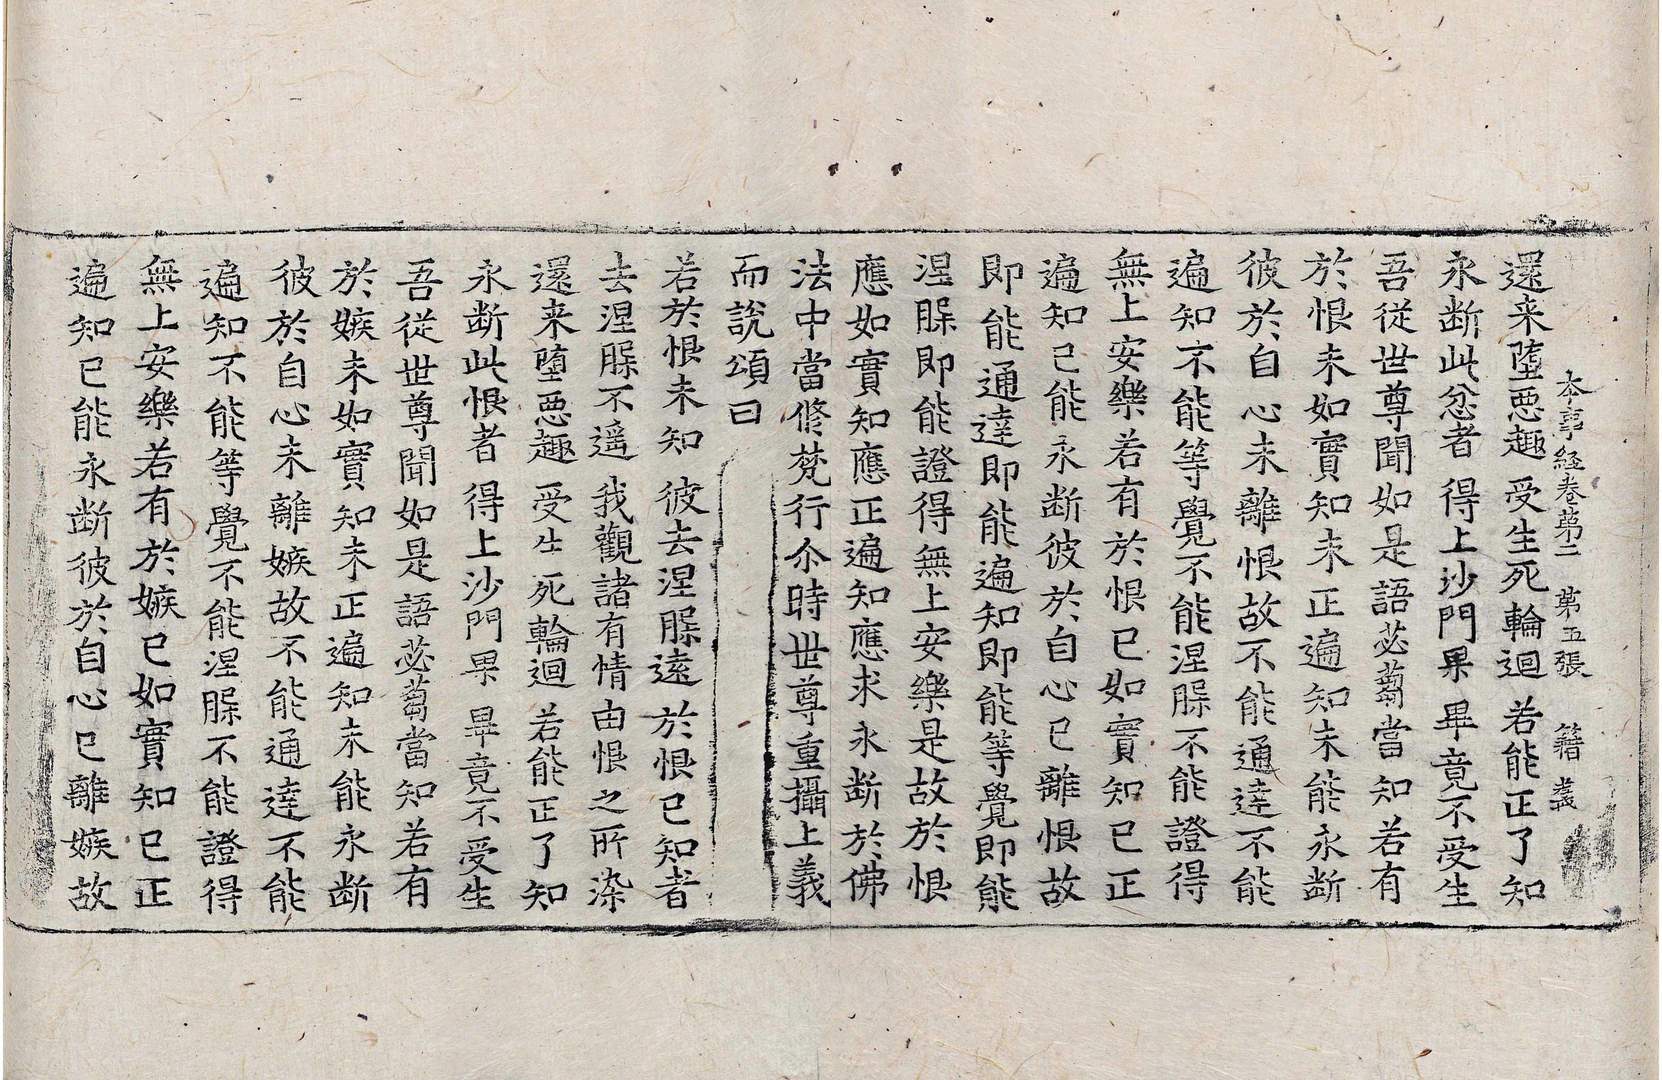 本事経卷第二　第五張　籍　義
還来墮恶趣　受生死輪迴　若能正了知
永断此忿者　得上沙門果　畢竟不受生
吾從世尊聞如是語苾蒭當知若有
於恨未如實知未正遍知未能永断
彼於自心未離恨故不能通達不能
遍知不能等覺不能涅縣不能證得
無上安樂若有於恨已如實知已正
遍知已能永断彼於自心已離恨故
即能通達即能遍知即能等覺即能
涅縣即能證得無上安樂是故於恨
應如實知應正遍知應求永断於佛
法中當修梵行尒時世尊重攝上義
而說頌曰
若於恨未知　彼去涅縣遠　於恨已知者
去涅縣不遥　我觀諸有情　由恨之所染
還来墮恶趣　受生死輪迴　若能正了知
永断此恨者　得上沙門果　畢竟不受生
吾從世尊聞如是語苾蒭當知若有
於嫉未如實知未正遍知未能永断
彼於自心未離嫉故不能通達不能
遍知不能等覺不能涅縣不能證得
無上安樂若有於嫉已如實知已正
遍知已能永断彼於自心已離嫉故